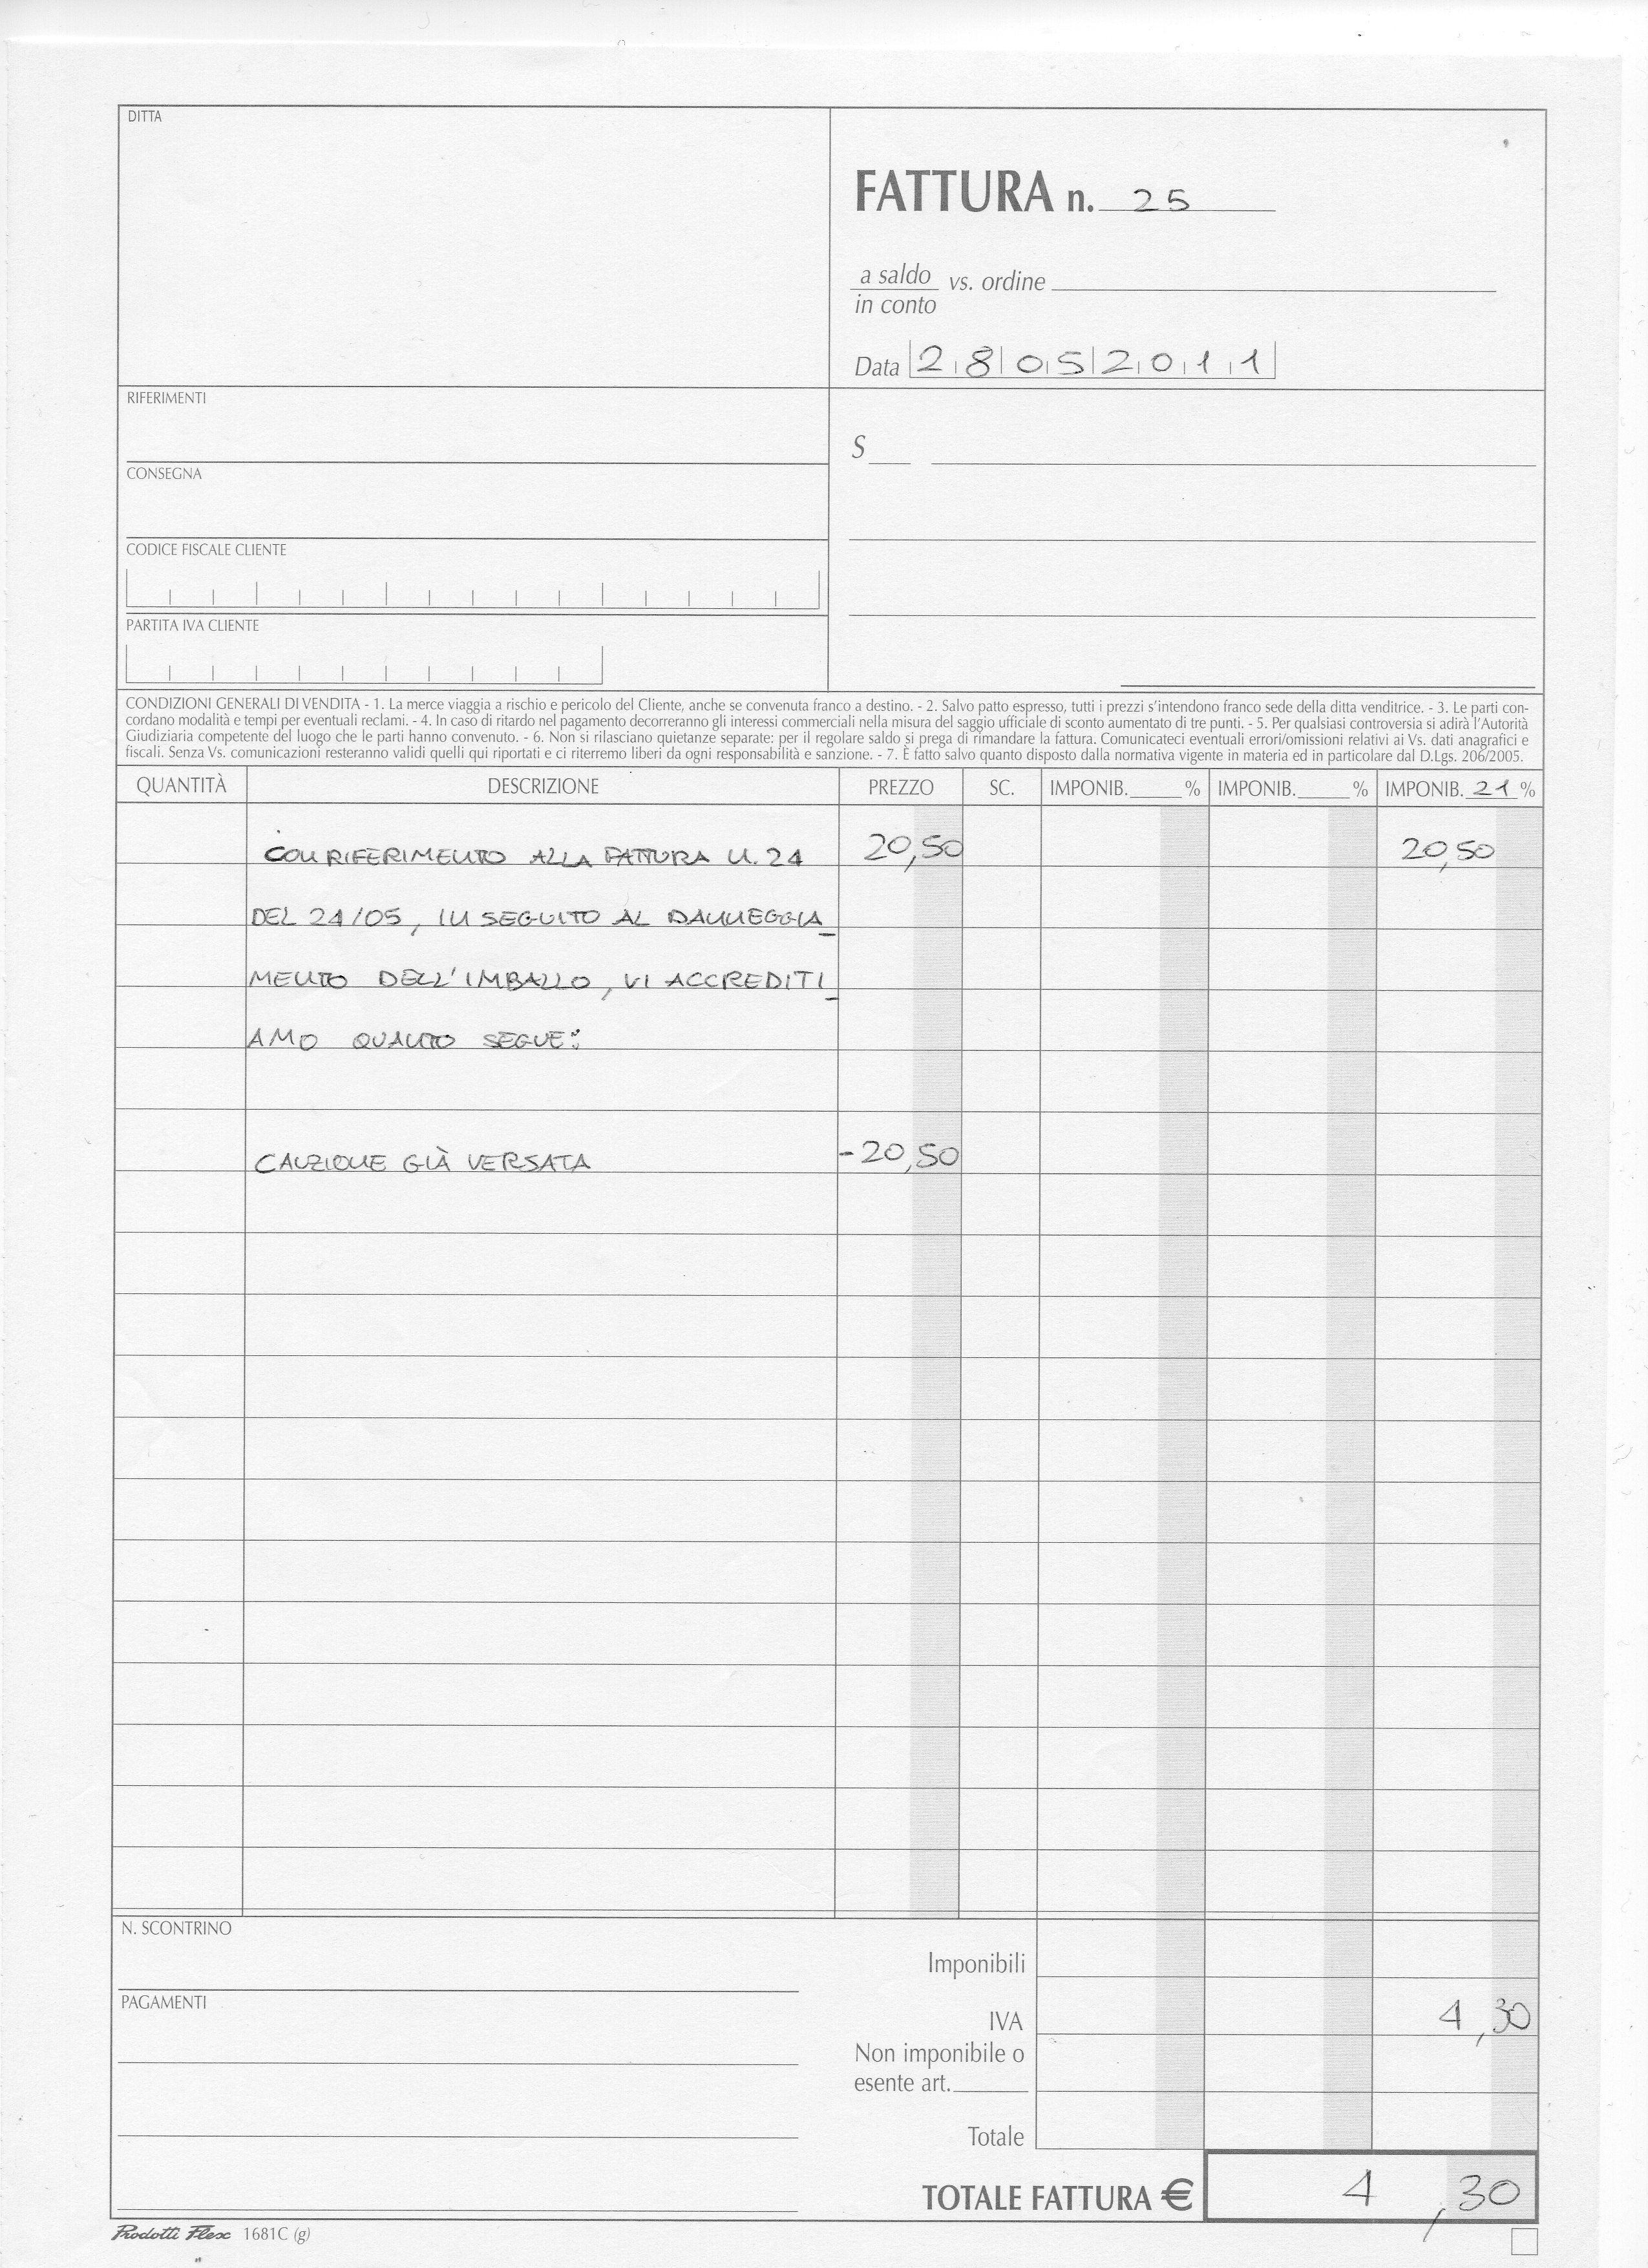 DITTA
FATTURA n. 25
a saldo vs. ordine
in conto
Data 28052011
RIFERIMENTI
S
CONSEGNA
CODICE FISCALE CLIENTE
PARTITA IVA CLIENTE
CONDIZIONI GENERALI DI VENDITA - 1. La merce viaggia a rischio e pericolo del Cliente, anche se convenuta franco a destino. - 2. Salvo patto espresso, tutti i prezzi s'intendono franco sede della ditta venditrice. - 3. Le parti con-
cordano modalità e tempi per eventuali reclami. - 4. In caso di ritardo nel pagamento decorreranno gli interessi commerciali nella misura del saggio ufficiale di sconto aumentato di tre punti. - 5. Per qualsiasi controversia si adirà l'Autorità
Giudiziaria competente del luogo che le parti hanno convenuto. - 6. Non si rilasciano quietanze separate: per il regolare saldo si prega di rimandare la fattura. Comunicateci eventuali errori/omissioni relativi ai Vs. dati anagrafici e
fiscali. Senza Vs. comunicazioni resteranno validi quelli qui riportati e ci riterremo liberi da ogni responsabilità e sanzione. - 7. È fatto salvo quanto disposto dalla normativa vigente in materia ed in particolare dal D.Lgs. 206/2005.
QUANTITÀ DESCRIZIONE PREZZO SC. IMPONIB. % IMPONIB. % IMPONIB. 21 %
CON RIFERIMENTO ALLA FATTURA N. 24 20,50 20,50
DEL 24/05, IN SEGUITO AL DANNEGGIA_
MENTO DELL'IMBALLO, VI ACCREDITI_
AMO QUANTO SEGUE:
CAUZIONE GIÀ VERSATA -20,50
N. SCONTRINO
Imponibili
PAGAMENTI
IVA 4,30
Non imponibile o
esente art.
Totale
TOTALE FATTURA € 4,30
Prodotti Flex 1681C (g)